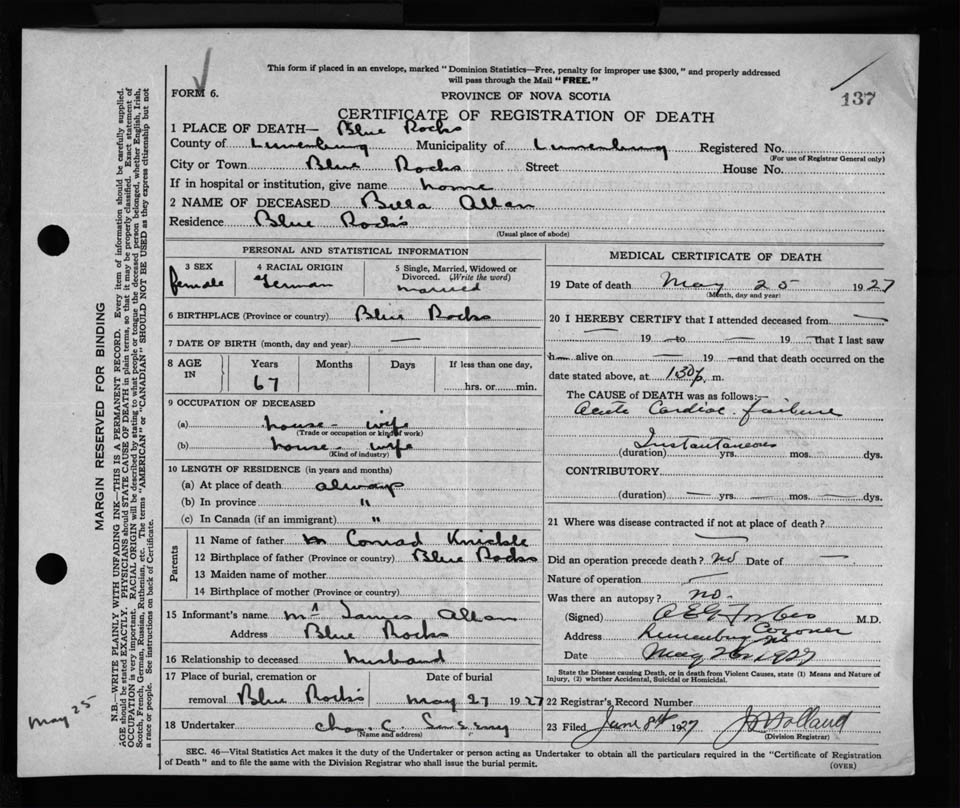 This form if placed in an envelope, marked "Dominion Statistics—Free, penalty for improper use $300," and properly addressed
will pass through the Mail "FREE."
FORM 6.
PROVINCE OF NOVA SCOTIA
137
CERTIFICATE OF REGISTRATION OF DEATH
1 PLACE OF DEATH— Blue Rocks
County of Lunenburg Municipality of Lunenburg Registered No.
(For use of Registrar General only)
City or Town Blue Rocks Street House No.
If in hospital or institution, give name home
2 NAME OF DECEASED Bella Allan
Residence Blue Rocks
(Usual place of abode)
PERSONAL AND STATISTICAL INFORMATION
3 SEX
female
4 RACIAL ORIGIN
German
5 Single, Married, Widowed or
Divorced. (Write the word)
married
6 BIRTHPLACE (Province or country) Blue Rocks
7 DATE OF BIRTH (month, day and year) —
8 AGE IN
Years Months Days If less than one day,
67 hrs. or min.
9 OCCUPATION OF DECEASED
(a) house-wife
(Trade or occupation or kind of work)
(b) house-wife
(Kind of industry)
10 LENGTH OF RESIDENCE (in years and months)
(a) At place of death always
(b) In province "
(c) In Canada (if an immigrant) "
Parents
11 Name of father Conrad Knickle
12 Birthplace of father (Province or country) Blue Rocks
13 Maiden name of mother
14 Birthplace of mother (Province or country)
15 Informant's name Mr James Allan
Address Blue Rocks
16 Relationship to deceased husband
17 Place of burial, cremation or Date of burial
removal Blue Rocks May 27 1927
18 Undertaker Chas. C.
(Name and address)
MEDICAL CERTIFICATE OF DEATH
19 Date of death May 25 1927
(Month, day and year)
20 I HEREBY CERTIFY that I attended deceased from —
— 19 — to — 19 — that I last saw
h— alive on — 19 — and that death occurred on the
date stated above, at 130 p. m.
The CAUSE of DEATH was as follows:—
Acute Cardiac failure
Instantaneous
(duration) yrs. mos. dys.
CONTRIBUTORY
(duration) — yrs. — mos. — dys.
21 Where was disease contracted if not at place of death?
—
Did an operation precede death? no Date of —
Nature of operation —
Was there an autopsy? no.
(Signed) M.D.
Coroner
Address Lunenburg NS
Date May 26 1927
State the Disease causing Death, or in death from Violent Causes, state (1) Means and Nature of
Injury, (2) whether Accidental, Suicidal or Homicidal.
22 Registrar's Record Number
23 Filed June 8th 1927
(Division Registrar)
SEC. 46—Vital Statistics Act makes it the duty of the Undertaker or person acting as Undertaker to obtain all the particulars required in the "Certificate of Registration
of Death" and to file the same with the Division Registrar who shall issue the burial permit.
(OVER)
MARGIN RESERVED FOR BINDING
N.B.—WRITE PLAINLY WITH UNFADING INK—THIS IS A PERMANENT RECORD. Every item of information should be carefully supplied.
AGE should be stated EXACTLY. PHYSICIANS should STATE CAUSE OF DEATH in plain terms, so that it may be properly classified. Exact statement of
OCCUPATION is very important. RACIAL ORIGIN will be described by stating to what people or tongue the deceased person belonged, whether English, Irish,
Scotch, French, German, Russian, Ruthenian, etc. The terms "AMERICAN" or "CANADIAN" SHOULD NOT BE USED as they express citizenship but not
a race or people. See instructions on back of Certificate.
May 25